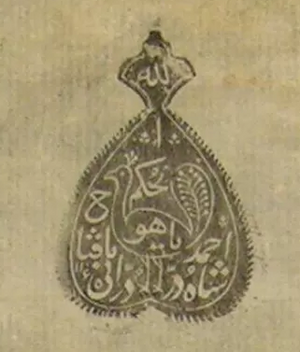 الله
الحکم
یا هو
احمد
شاه درّ درّانی
یا فتاح